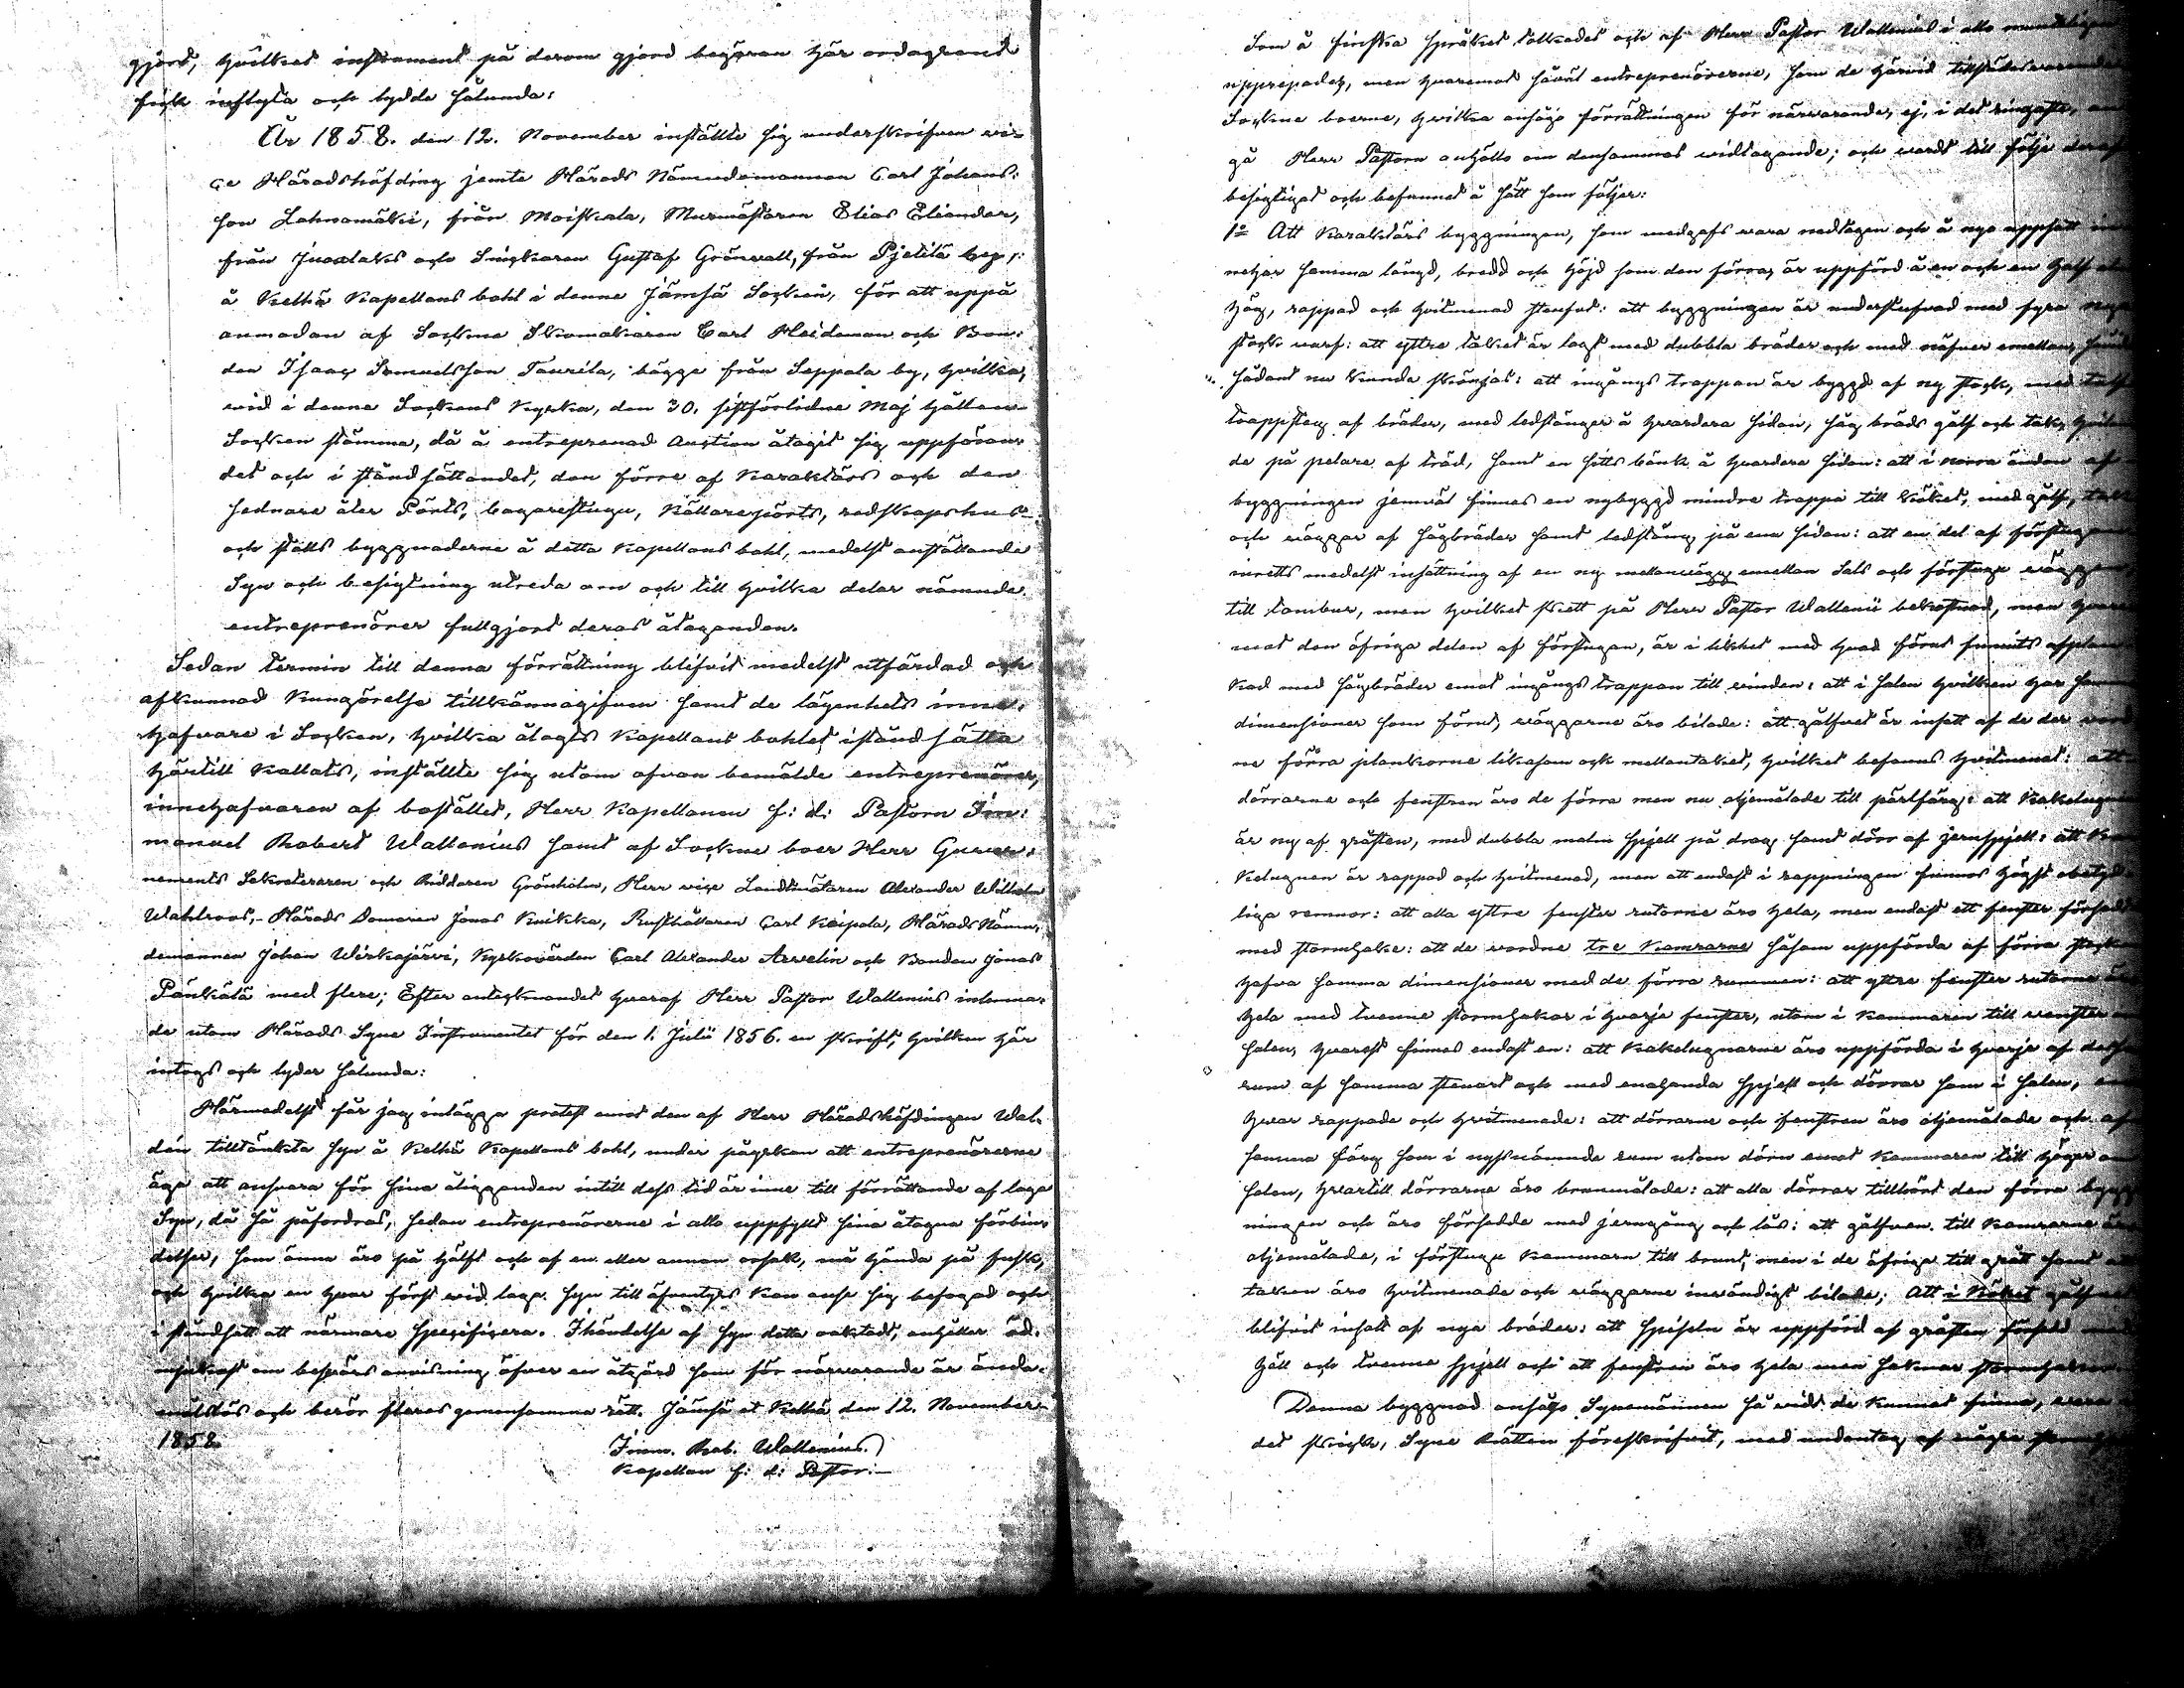 gjord, hvilket instrument på derom gjord begäran här ordagrant
fick inflyta och lydde sålunda:
År 1858. den 12. November inställte sig underskrifven vi-
ce Häradshöfding jemte Härads Nämndemannen Carl Johans-
son Lahnamäki, från Moiskala, Murmästaren Elias Eliander,
från Juoxlaks och Snickaren Gustaf Grönvall, från Pjetilä by,
å Kelhä Kapellans bohl i denne Jämsä Socken, för att uppå
anmodan af Sockne Skomakaren Carl Heideman och Bon-
den Isaac Samuelsson Taurila, bägge från Seppola by, hvilka,
vid i denne Sockens Kyrka, den 30. sistförlidne Maj hållen
Socken stämma, då å entreprenad Auction åtagit sig uppföran-
det och i ståndsättandet, den förre af Karaktärs och den
sednare åter Pörts, bagarestugu, Källarepörts, redskapshus
och ställs byggnaderne å detta Kapellans bohl, medelst anställande
Syn och besigtning utreda om och till hvilka delar nämnde
entreprenörer fullgjort deras åtaganden.
Sedan termin till denna förrättning blifvit medelst utfärdad och
afkunnad Kungörelse tillkännagifven samt de lägenhets inne-
hafvare i Socken, hvilka ålagts Kapellans bohlets iståndsätta
härtill kallats, inställte sig utom ofvan bemälde entreprenörer,
innehafvaren af bostället, Herr Kapellanen f: d: Pastorn Im-
manuel Robert Wallenius samt af Sockne boer Herr Guver-
nements Sekreteraren och Riddaren Grönholm, Herr vice Landtmätaren Alexander Wilhelm
Wahlroos, Härads Domaren Jonas Knikka, Rusthållaren Carl Kaipola, Härads Näm-
demannen Johan Wirkajärvi, Kyrkovärden Carl Alexander Arvelin och Bonden Jonas
Pänkälä med flere; Efter antecknandet hvaraf Herr Pastor Wallenius inlemna-
de utom Härads Syne Instrumentet för den 1. Julii 1856. en skrift, hvilken här
intogs och lyder sålunda:
Härmedelst får jag inlägga protest emot den af Herr Häradshöfdingen Wal-
dén tilltänkta syn å Kelhä Kapellans bohl, under påyrkan att entreprenörerne
äga att ansvara för sina åligganden intill dess tid är inne till förrättande af laga
Syn, då så påfordras, sedan entreprenörerne i allo uppfyllt sina åtagna förbin-
delser, som ännu äro på hälft och af en eller annan orsak, må hända på fusk,
och hvilka en hvar först vid laga syn till äfventyrs kan anse sig befogad och
i ståndsatt att närmare specificera. I händelse af syn detta oaktadt, anhåller öd-
mjukast om besvärs anvisning öfver en åtgärd som för närvarande är ända-
målslös och berör fleras gemensamma rätt. Jämsä et Kelhä den 12. November
1858.
Imm. Rob. Wallenius.
Kapellan f: d: Pastor.
Som å finska språket tolkades och af Herr Pastor Wallenius i allo mundtligen
upprepades, men hvaremot såväl entreprenörerne, som de härvid tillstädesvarande
Sockne boerne, hvilka ansågo förrättningen för närvarande, ej i det ringaste, an-
gå Herr Pastorn anhöllo om densammas vidtagande; och vardt till följe deraf
besigtigat och befunnet å sätt som följer:
1o Att Karaktärs byggningen, som medgafs vara nedtagen och å nyo uppsatt in-
nehar samma längd, bredd och höjd som den förra, är uppförd å en och en half aln
hög, rappad och hvitmenad stenfot: att byggningen är understufvad med fyra nya
stock varf: att yttre taket är lagt med dubbla bräder och med näfver emellan,
sådant nu kunde skönjas: att ingångs trappan är byggd af ny stock, med
trappsteg af bräder, med ledstänger å hvardera sidan, såg bräds gålf och tak, hvilan-
de på pelare af träd, samt en sitts bänk å hvardera sidan: att i norra ändan af
byggningen jemväl finnes en nybyggd mindre trappa till köket, med gålf, tak
och väggar af sågbräder samt ledstång på ena sidan: att en del af förstugan
inretts medelst insättning af en ny mellanvägg emellan Sals och förstugu väggen
till tambur, men hvilket skett på Herr Pastor Wallenii bekostnad, men hvare-
mot den öfriga delen af förstugan, är i likhet med hvad förut funnits afplan-
kad med sågbräder emot ingångs trappan till vinden: att i Salen hvilken har samma
dimensioner som förut, väggarne äro bilade: att gålfvet är insatt af de der
ne förra plankorne likasom och mellantaket, hvilket befanns hvitmenat: att
dörrarne och fenstren äro de förra men nu oljemålade till pärlfärg: att Kakelugnen
är ny af gråsten, med dubbla malm spjell på drag samt dörr af jernspjell: att Ka-
kelugnen är rappad och hvitmenad, men att endast i rappningen finnes högst obetyd-
liga remnor: att alla yttre fenster rutorne äro hela, men endast ett fenster försedt
med stormhake: att de vordne tre Kamrarne såsom uppförda af förra stockar
hafva samma dimensioner med de förra rummen: att yttre fenster rutorne äro
hela med tvenne stormhakar i hvarje fenster, utom i Kammaren till venster om
Salen, hvarest finnes endast en: att kakelugnarne äro uppförda i hvarje af dessa
rum af samma stenart och med enahanda spjell och dörrar som i Salen,
hvar rappade och hvitmenade: att dörrarne och fenstren äro oljemålade och af
samma färg som i nyssnämnde rum utom dörn emot Kammaren till höger om
Salen, hvartill dörrarne äro brunmålade: att alla dörrar tillhört den förra bygg-
ningen och äro försedde med jerngång och lås: att gålfven till Kamrarne äro
oljemålade, i förstugu kammarn till brunt, men i de öfriga till grått samt att
taken äro hvitmenade och väggarne invändigt bilade; Att i Köket gålfvet
blifvit insatt af nya bräder: att spiseln är uppförd af gråsten försedd med
häll och tvenne spjell och att fenstren äro hela men saknar stormhakar.
Denna byggnad ansågo Synemännen så vidt de kunnat finna, vara i
det skick, Syne Rätten föreskrifvit, med undantag af några